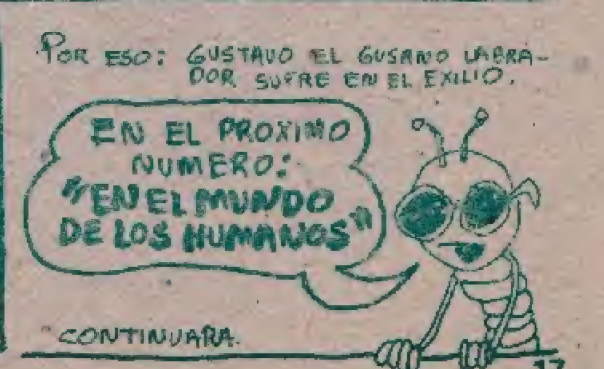 POR ESO: GUSTAVO EL GUSANO LABRA-
DOR SUFRE EN EL EXILIO.
EN EL PROXIMO
NUMERO:
"EN EL MUNDO
DE LOS HUMANOS"
CONTINUARA.
17